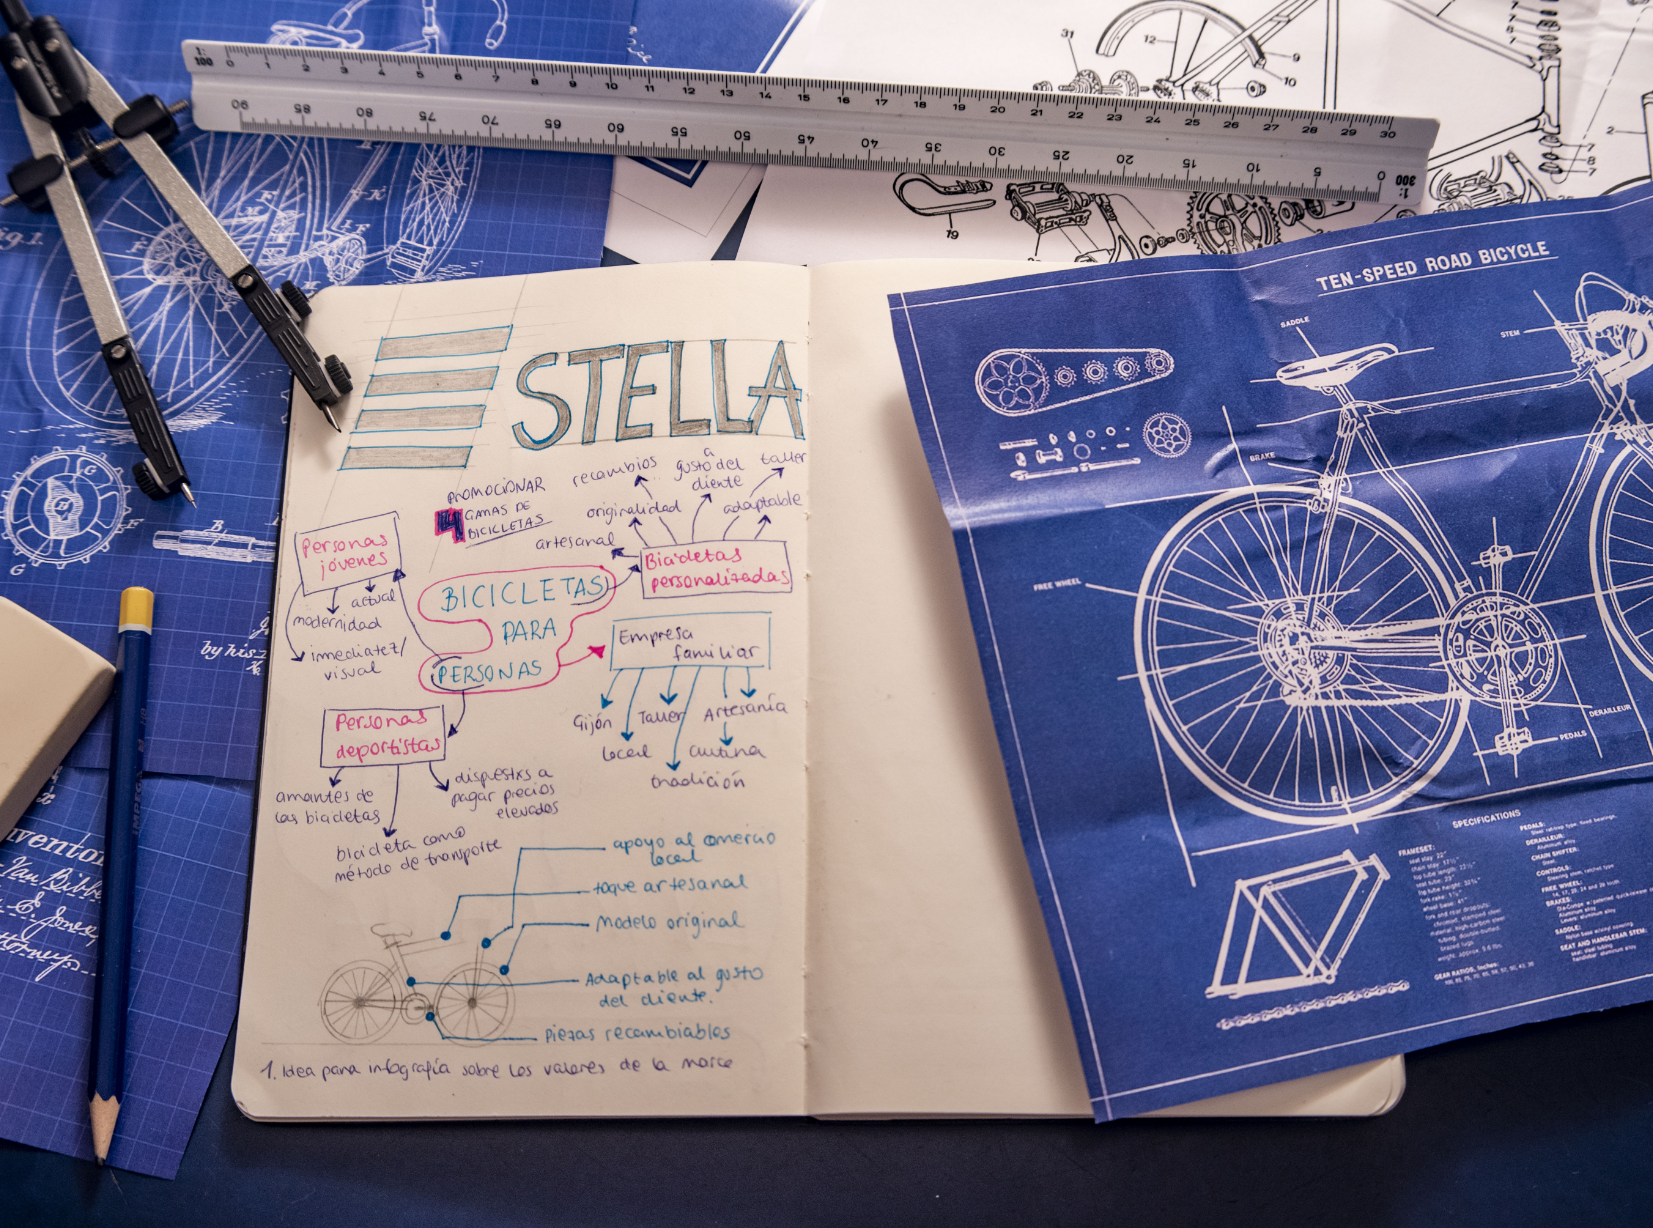 1:100
0 1 2 3 4 5 6 7 8 9 10 11 12 13 14 15 16 17 18 19 20 21 22 23 24 25 26 27 28 29 30
90 85 80 75 70 65 60 55 50 45 40 35 30 25 20 15 10 5 0
1:300
31
12
9
10
2
7
8
7
19
STELLA
PROMOCIONAR
4 GAMAS DE
BICICLETAS
recambios
a
gusto del
cliente
taller
originalidad
adaptable
artesanal
Bicicletas
personalizadas
Personas
jóvenes
actual
modernidad
inmediatez/
visual
BICICLETAS
PARA
PERSONAS
Empresa
familiar
Gijón
Taller
Artesanía
local
cultura
tradición
Personas
deportistas
amantes de
las bicicletas
dispuestxs a
pagar precios
elevados
bicicleta como
método de transporte
apoyo al comercio
local
toque artesanal
Modelo original
Adaptable al gusto
del cliente.
Piezas recambiables
1. Idea para infografía sobre los valores de la marca
TEN-SPEED ROAD BICYCLE
SADDLE
STEM
BRAKE
FREE WHEEL
DERAILLEUR
PEDALS
SPECIFICATIONS
FRAMESET:
PEDALS:
DERAILLEUR:
CHAIN SHIFTER:
CONTROLS:
FREE WHEEL:
BRAKES:
SADDLE:
SEAT AND HANDLEBAR STEM:
GEAR RATIOS, Inches:
by his